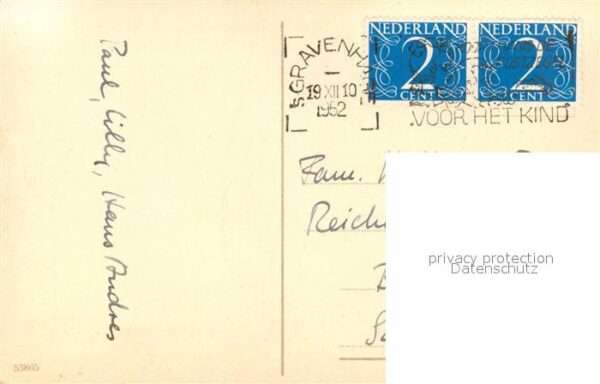 Paul, Lilly, Hans Andres
NEDERLAND NEDERLAND
2 2
CENT CENT
'S-GRAVENH
19 XII 10
1952
VOOR HET KIND
Fam.
Reich
privacy protection
Datenschutz
53865